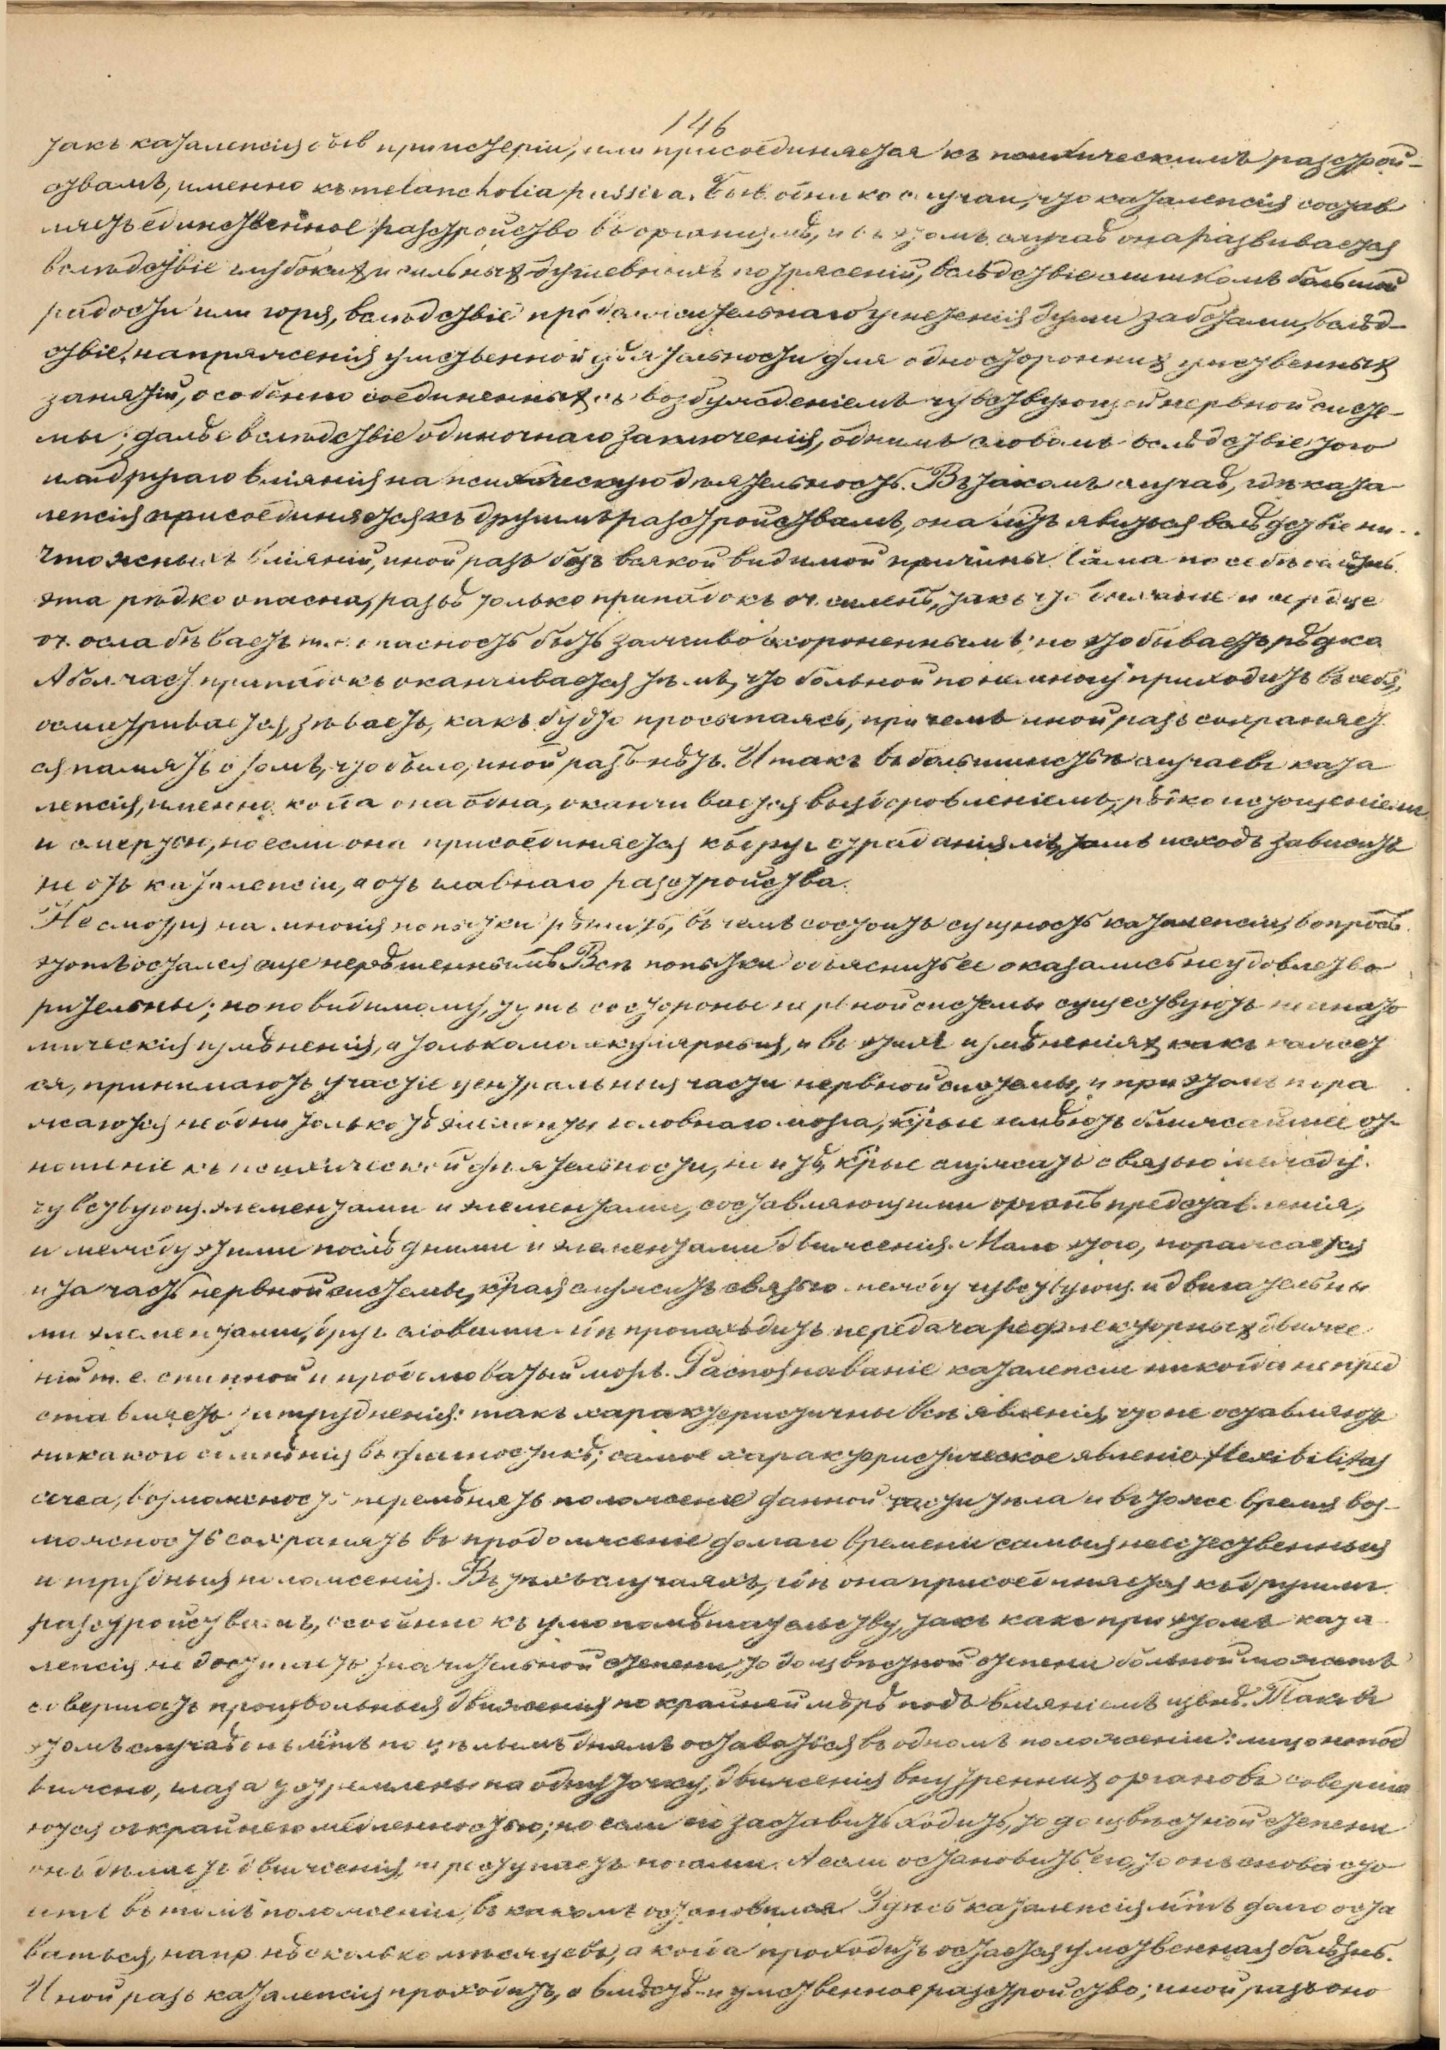 146
такъ каталепсія быв при истеріи, или присоединяется къ психическимъ разстрой-
ствамъ, именно къ melancholia passiva. Быв. однико случаи, что каталепсія состав
ляетъ единственное разстройство въ организмѣ, и въ этомъ случаѣ она развивается
вслѣдствіе глубокихъ и сильныхъ душевныхъ потрясеній, вслѣдствіе слишкомъ большой
радости или горя, вслѣдствіе продолжительнаго угнетенія души заботами, вслѣд-
ствіе напряженія умственной дѣятельности для одностороннихъ умственныхъ
занятій, особенно соединенныхъ съ возбужденіемъ чувствующей нервной систе-
мы; далѣе вслѣдствіе одиночнаго заключенія, однимъ словомъ вслѣдствіе того
или другаго вліянія на психическую дѣятельность. Въ такомъ случаѣ, гдѣ ката
лепсія присоединяется къ другимъ разстройствамъ, она мтъ явиться вслѣдствіе ни-
чтожныхъ вліяній, иной разъ безъ всякой видимой причины. Сама по себѣ болѣзнь
эта рѣдко опасна, развѣ только припадокъ оч. силенъ, такъ что дыханіе и сердце
оч. ослабѣваетъ т. е. опасность быть заживо схороненнымъ; но это бываетъ рѣдко
А бол. част. припадокъ оканчивается тѣмъ, что больной понемногу приходитъ въ себя,
осматривается, зѣваетъ, какъ будто просыпаясь, при чемъ иной разъ сохраняет
ся память о томъ, что было, иной разъ нѣтъ. И такъ въ большинствѣ случаевъ ката
лепсія, именно когда она одна, оканчивается выздоровленіемъ, рѣдко истощеніемъ
и смертью, но если она присоединяется къ друг. страданіямъ, тамъ исходъ зависитъ
не отъ каталепсіи, а отъ главнаго разстройства.
Не смотря на многія попытки рѣшить, въ чемъ состоитъ сущность каталепсіи, вопросъ
этотъ остался еще нерѣшеннымъ. Всѣ попытки объяснить ее оказались неудовлетво
рительны; но по видимому, тутъ со стороны нервной системы существуютъ не анато
мическія измѣненія, а только молекулярныя, и въ этихъ измѣненіяхъ какъ кажет
ся, принимаютъ участіе центральныя части нервной системы, и при этомъ пора
жаются не одни только тѣ элементы головнаго мозга, крые имѣютъ ближайшее от-
ношеніе къ психической дѣятельности, но и тѣ, крые служатъ связью между
чувствующ. элементами и элементами, составляющими органъ представленія,
и между этими послѣдними и элементами движенія. Мало того, поражается
и та часть нервной системы, края служитъ связью между чувствующ. и двигательны
ми элементами, друг. словами гдѣ происходитъ передача рефлекторныхъ движе
ній т. е. спинной и продолговатый мозгъ. Распознаваніе каталепсіи никогда не пред
ставляетъ затрудненія: такъ характеристичны всѣ явленія, что не оставляютъ
никакого сомнѣнія въ діагностикѣ; самое характеристическое явленіе flexibilitas
cerea, возможность перемѣнять положеніе данной части тѣла и въ тоже время воз-
можность сохранять въ продолженіе долгаго времени самыя неестественныя
и трудныя положенія. Въ тѣхъ случаяхъ, гдѣ она присоединяется къ другимъ
разстройствамъ, особенно къ умопомѣшательству, такъ какъ при этомъ ката
лепсія не достигаетъ значительной степени, то до извѣстной степени больной можетъ
совершать произвольныя движенія по крайней мѣрѣ подъ вліяніемъ извнѣ. Такъ въ
этомъ случаѣ онъ мтъ по цѣлымъ днямъ оставаться въ одномъ положеніи: лицо непод
вижно, глаза устремлены на одну точку, движенія внутреннихъ органовъ соверша
ются съ крайнею медленностью; но если его заставить ходить, то до извѣстной степени
онъ дѣлаетъ движенія, переступаетъ ногами. А если остановить его, то онъ снова сто
итъ въ томъ положеніи, въ какомъ остановился. Здѣсь каталепсія мтъ долго оста
ваться, напр нѣсколько мѣсяцевъ, а когда проходитъ остается умственная болѣзнь.
Иной разъ каталепсія проходитъ, а вмѣстѣ и умственное разстройство; иной разъ оно